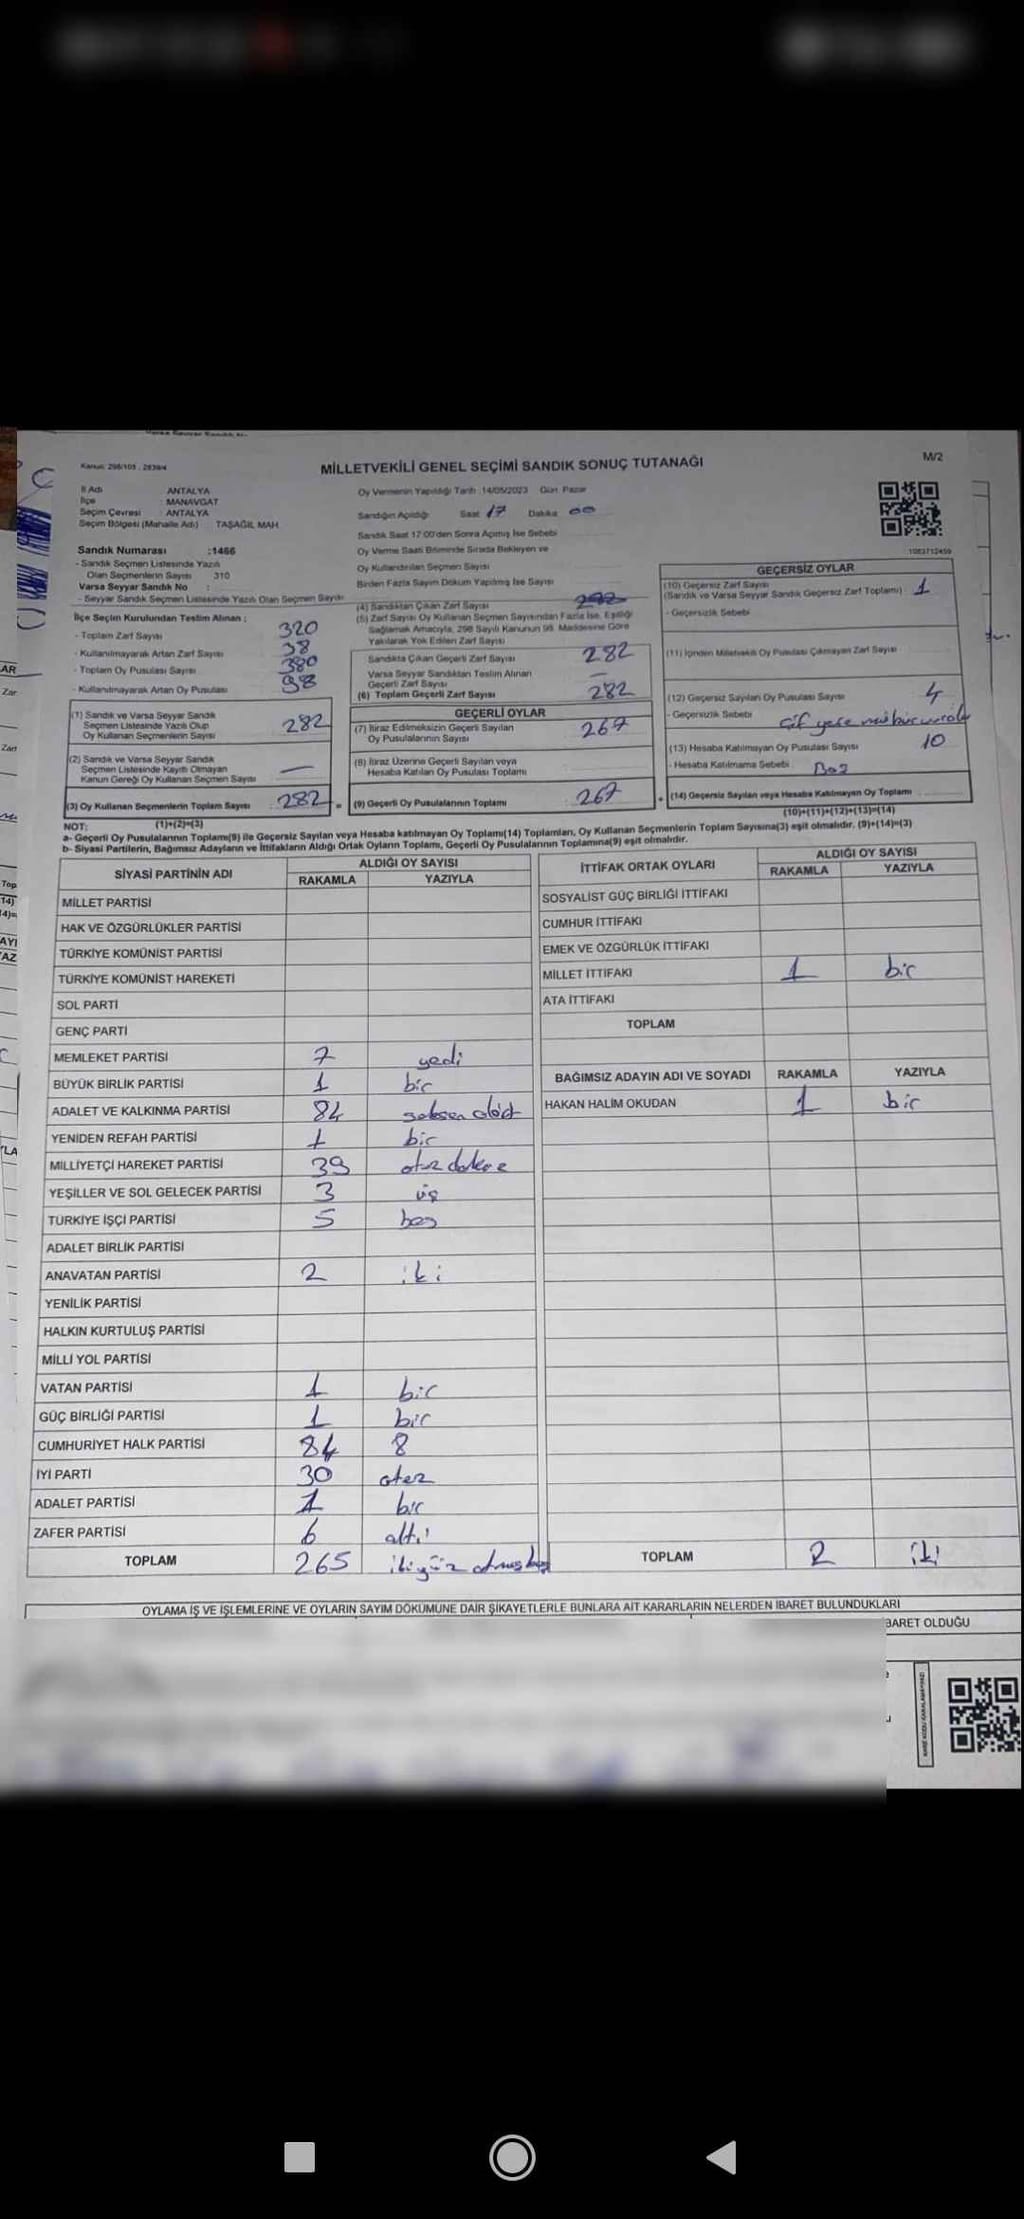 Kanun: 298/105 , 2839/4
MİLLETVEKİLİ GENEL SEÇİMİ SANDIK SONUÇ TUTANAĞI
M/2
İl Adı : ANTALYA
İlçe : MANAVGAT
Seçim Çevresi : ANTALYA
Seçim Bölgesi (Mahalle Adı) : TAŞAĞIL MAH.
Oy Vermenin Yapıldığı Tarih :14/05/2023 Gün: Pazar
Sandığın Açıldığı Saat 17 Dakika 00
Sandık Saat 17.00'den Sonra Açımış İse Sebebi
Oy Verme Saati Bitiminde Sırada Bekleyen ve
Oy Kullandırılan Seçmen Sayısı
Birden Fazla Sayım Döküm Yapılmış İse Sayısı
1083712459
Sandık Numarası :1466
- Sandık Seçmen Listesinde Yazılı
Olan Seçmenlerin Sayısı 310
Varsa Seyyar Sandık No :
- Seyyar Sandık Seçmen Listesinde Yazılı Olan Seçmen Sayısı
İlçe Seçim Kurulundan Teslim Alınan :
- Toplam Zarf Sayısı 320
- Kullanılmayarak Artan Zarf Sayısı 38
- Toplam Oy Pusulası Sayısı 380
- Kullanılmayarak Artan Oy Pusulası 98
(1) Sandık ve Varsa Seyyar Sandık
Seçmen Listesinde Yazılı Olup
Oy Kullanan Seçmenlerin Sayısı 282
(2) Sandık ve Varsa Seyyar Sandık
Seçmen Listesinde Kayıtlı Olmayan
Kanun Gereği Oy Kullanan Seçmen Sayısı —
(3) Oy Kullanan Seçmenlerin Toplam Sayısı 282 =
(4) Sandıktan Çıkan Zarf Sayısı 282
(5) Zarf Sayısı Oy Kullanan Seçmen Sayısından Fazla İse, Eşitliği
Sağlamak Amacıyla, 298 Sayılı Kanunun 98. Maddesine Göre
Yakılarak Yok Edilen Zarf Sayısı
Sandıkta Çıkan Geçerli Zarf Sayısı 282
Varsa Seyyar Sandıktan Teslim Alınan
Geçerli Zarf Sayısı —
(6) Toplam Geçerli Zarf Sayısı 282
GEÇERLİ OYLAR
(7) İtiraz Edilmeksizin Geçerli Sayılan
Oy Pusulalarının Sayısı 267
(8) İtiraz Üzerine Geçerli Sayılan veya
Hesaba Katılan Oy Pusulası Toplamı
(9) Geçerli Oy Pusulalarının Toplamı 267 +
GEÇERSİZ OYLAR
(10) Geçersiz Zarf Sayısı
(Sandık ve Varsa Seyyar Sandık Geçersiz Zarf Toplamı) : 1
- Geçersizlik Sebebi
(11) İçinden Milletvekili Oy Pusulası Çıkmayan Zarf Sayısı
(12) Geçersiz Sayılan Oy Pusulası Sayısı 4
- Geçersizlik Sebebi
(13) Hesaba Katılmayan Oy Pusulası Sayısı 10
- Hesaba Katılmama Sebebi : Boş
(14) Geçersiz Sayılan veya Hesaba Katılmayan Oy Toplamı
(10)+(11)+(12)+(13)=(14)
NOT: (1)+(2)=(3)
a- Geçerli Oy Pusulalarının Toplamı(9) ile Geçersiz Sayılan veya Hesaba katılmayan Oy Toplamı(14) Toplamları, Oy Kullanan Seçmenlerin Toplam Sayısına(3) eşit olmalıdır. (9)+(14)=(3)
b- Siyasi Partilerin, Bağımsız Adayların ve İttifakların Aldığı Ortak Oyların Toplamı, Geçerli Oy Pusulalarının Toplamına(9) eşit olmalıdır.
SİYASİ PARTİNİN ADI
ALDIĞI OY SAYISI
RAKAMLA YAZIYLA
MİLLET PARTİSİ
HAK VE ÖZGÜRLÜKLER PARTİSİ
TÜRKİYE KOMÜNİST PARTİSİ
TÜRKİYE KOMÜNİST HAREKETİ
SOL PARTİ
GENÇ PARTİ
MEMLEKET PARTİSİ 7 yedi
BÜYÜK BİRLİK PARTİSİ 1 bir
ADALET VE KALKINMA PARTİSİ 84 seksen dört
YENİDEN REFAH PARTİSİ 1 bir
MİLLİYETÇİ HAREKET PARTİSİ 39 otuz dokuz
YEŞİLLER VE SOL GELECEK PARTİSİ 3 üç
TÜRKİYE İŞÇİ PARTİSİ 5 beş
ADALET BİRLİK PARTİSİ
ANAVATAN PARTİSİ 2 iki
YENİLİK PARTİSİ
HALKIN KURTULUŞ PARTİSİ
MİLLİ YOL PARTİSİ
VATAN PARTİSİ 1 bir
GÜÇ BİRLİĞİ PARTİSİ 1 bir
CUMHURİYET HALK PARTİSİ 84 8
İYİ PARTİ 30 otuz
ADALET PARTİSİ 1 bir
ZAFER PARTİSİ 6 altı
TOPLAM 265 ikiyüz altmış beş
İTTİFAK ORTAK OYLARI
ALDIĞI OY SAYISI
RAKAMLA YAZIYLA
SOSYALİST GÜÇ BİRLİĞİ İTTİFAKI
CUMHUR İTTİFAKI
EMEK VE ÖZGÜRLÜK İTTİFAKI
MİLLET İTTİFAKI 1 bir
ATA İTTİFAKI
TOPLAM
BAĞIMSIZ ADAYIN ADI VE SOYADI RAKAMLA YAZIYLA
HAKAN HALİM OKUDAN 1 bir
TOPLAM 2 iki
OYLAMA İŞ VE İŞLEMLERİNE VE OYLARIN SAYIM DÖKÜMÜNE DAİR ŞİKAYETLERLE BUNLARA AİT KARARLARIN NELERDEN İBARET BULUNDUKLARI
BARET OLDUĞU